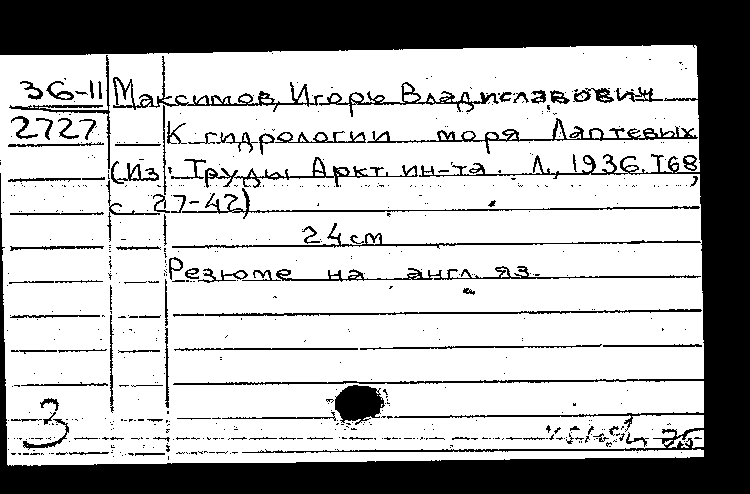 36-11 Максимов, Игорь Владиславович
2727 К гидрологии моря Лаптевых
(Из: Труды Аркт. ин-та. Л., 1936. Т68,
с. 27-42)
24 см
Резюме на англ. яз.
3